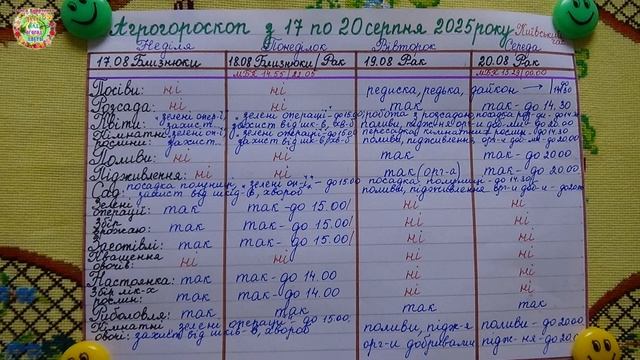 Агрогороскоп з 17 по 20 серпня 2025 року Київський
Неділя Понеділок Вівторок Середа
17.08 Близнюки 18.08 Близнюки/Рак 19.08 Рак 20.08 Рак
Посіви: ні ні редиска, редька, дайкон → 14.30
Розсада: ні ні так так - до 14.30
Квіти: зелені опер-ї, "зелені операції" - до 15.00 робота з розсадою, посадка
захист захист від шк-в,
Кімнатні зелені он-ї "зелені операції" - до 15.00 пересадка кімнатних рослин - до 14.30
рослини: захист захист від шк-в, поливи, підживлення
Поливи: ні ні так так - до 20.00
Підживлення: ні ні так (орг-а) так - до 20.00
Сад: посадка полуниці, "зелені он-ї" - до 15.00 посадка полуниці - до 14.30
захист від шкід-в, хвороб поливи, підживлення орг-и
Зелені
операції: так так - до 15.00/ ні ні
Збір
врожаю: так так - до 15.00/ ні ні
Заготівлі: так так - до 15.00/ ні ні
Квашення
овочів: ні ні ні ні
Настоянка: так так - до 14.00 ні ні
Збір лік-х
рослин: так так - до 14.00 ні ні
Риболовля: так так так так
Кімнатні "зелені операції - до 15.00 поливи, підж-я поливи - до 20.00
овочі: захист від шків-в, хвороб орг-и добривами підж-ня - до 20.00